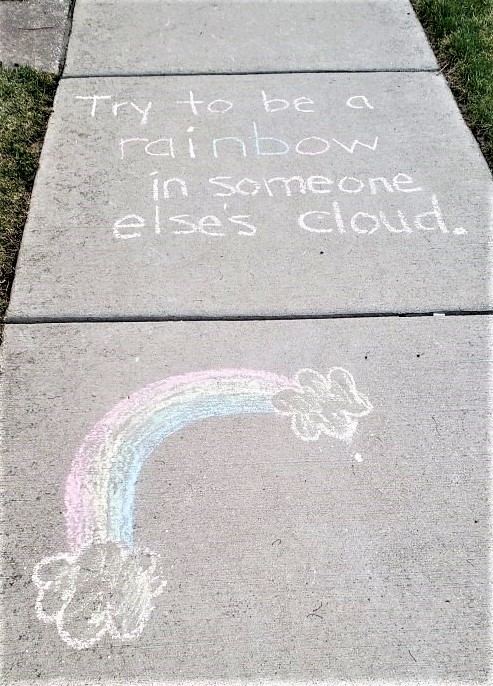 Try to be a
rainbow
in someone
else's cloud.